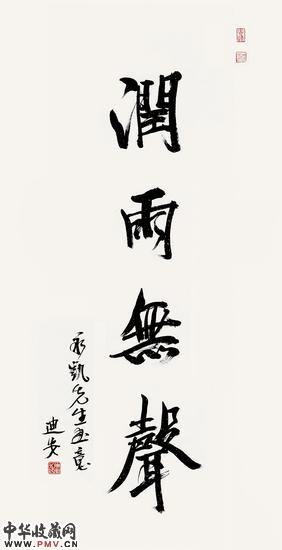 潤雨無聲
永凱先生画意
迪安
中华收藏网
www.PMV.CN